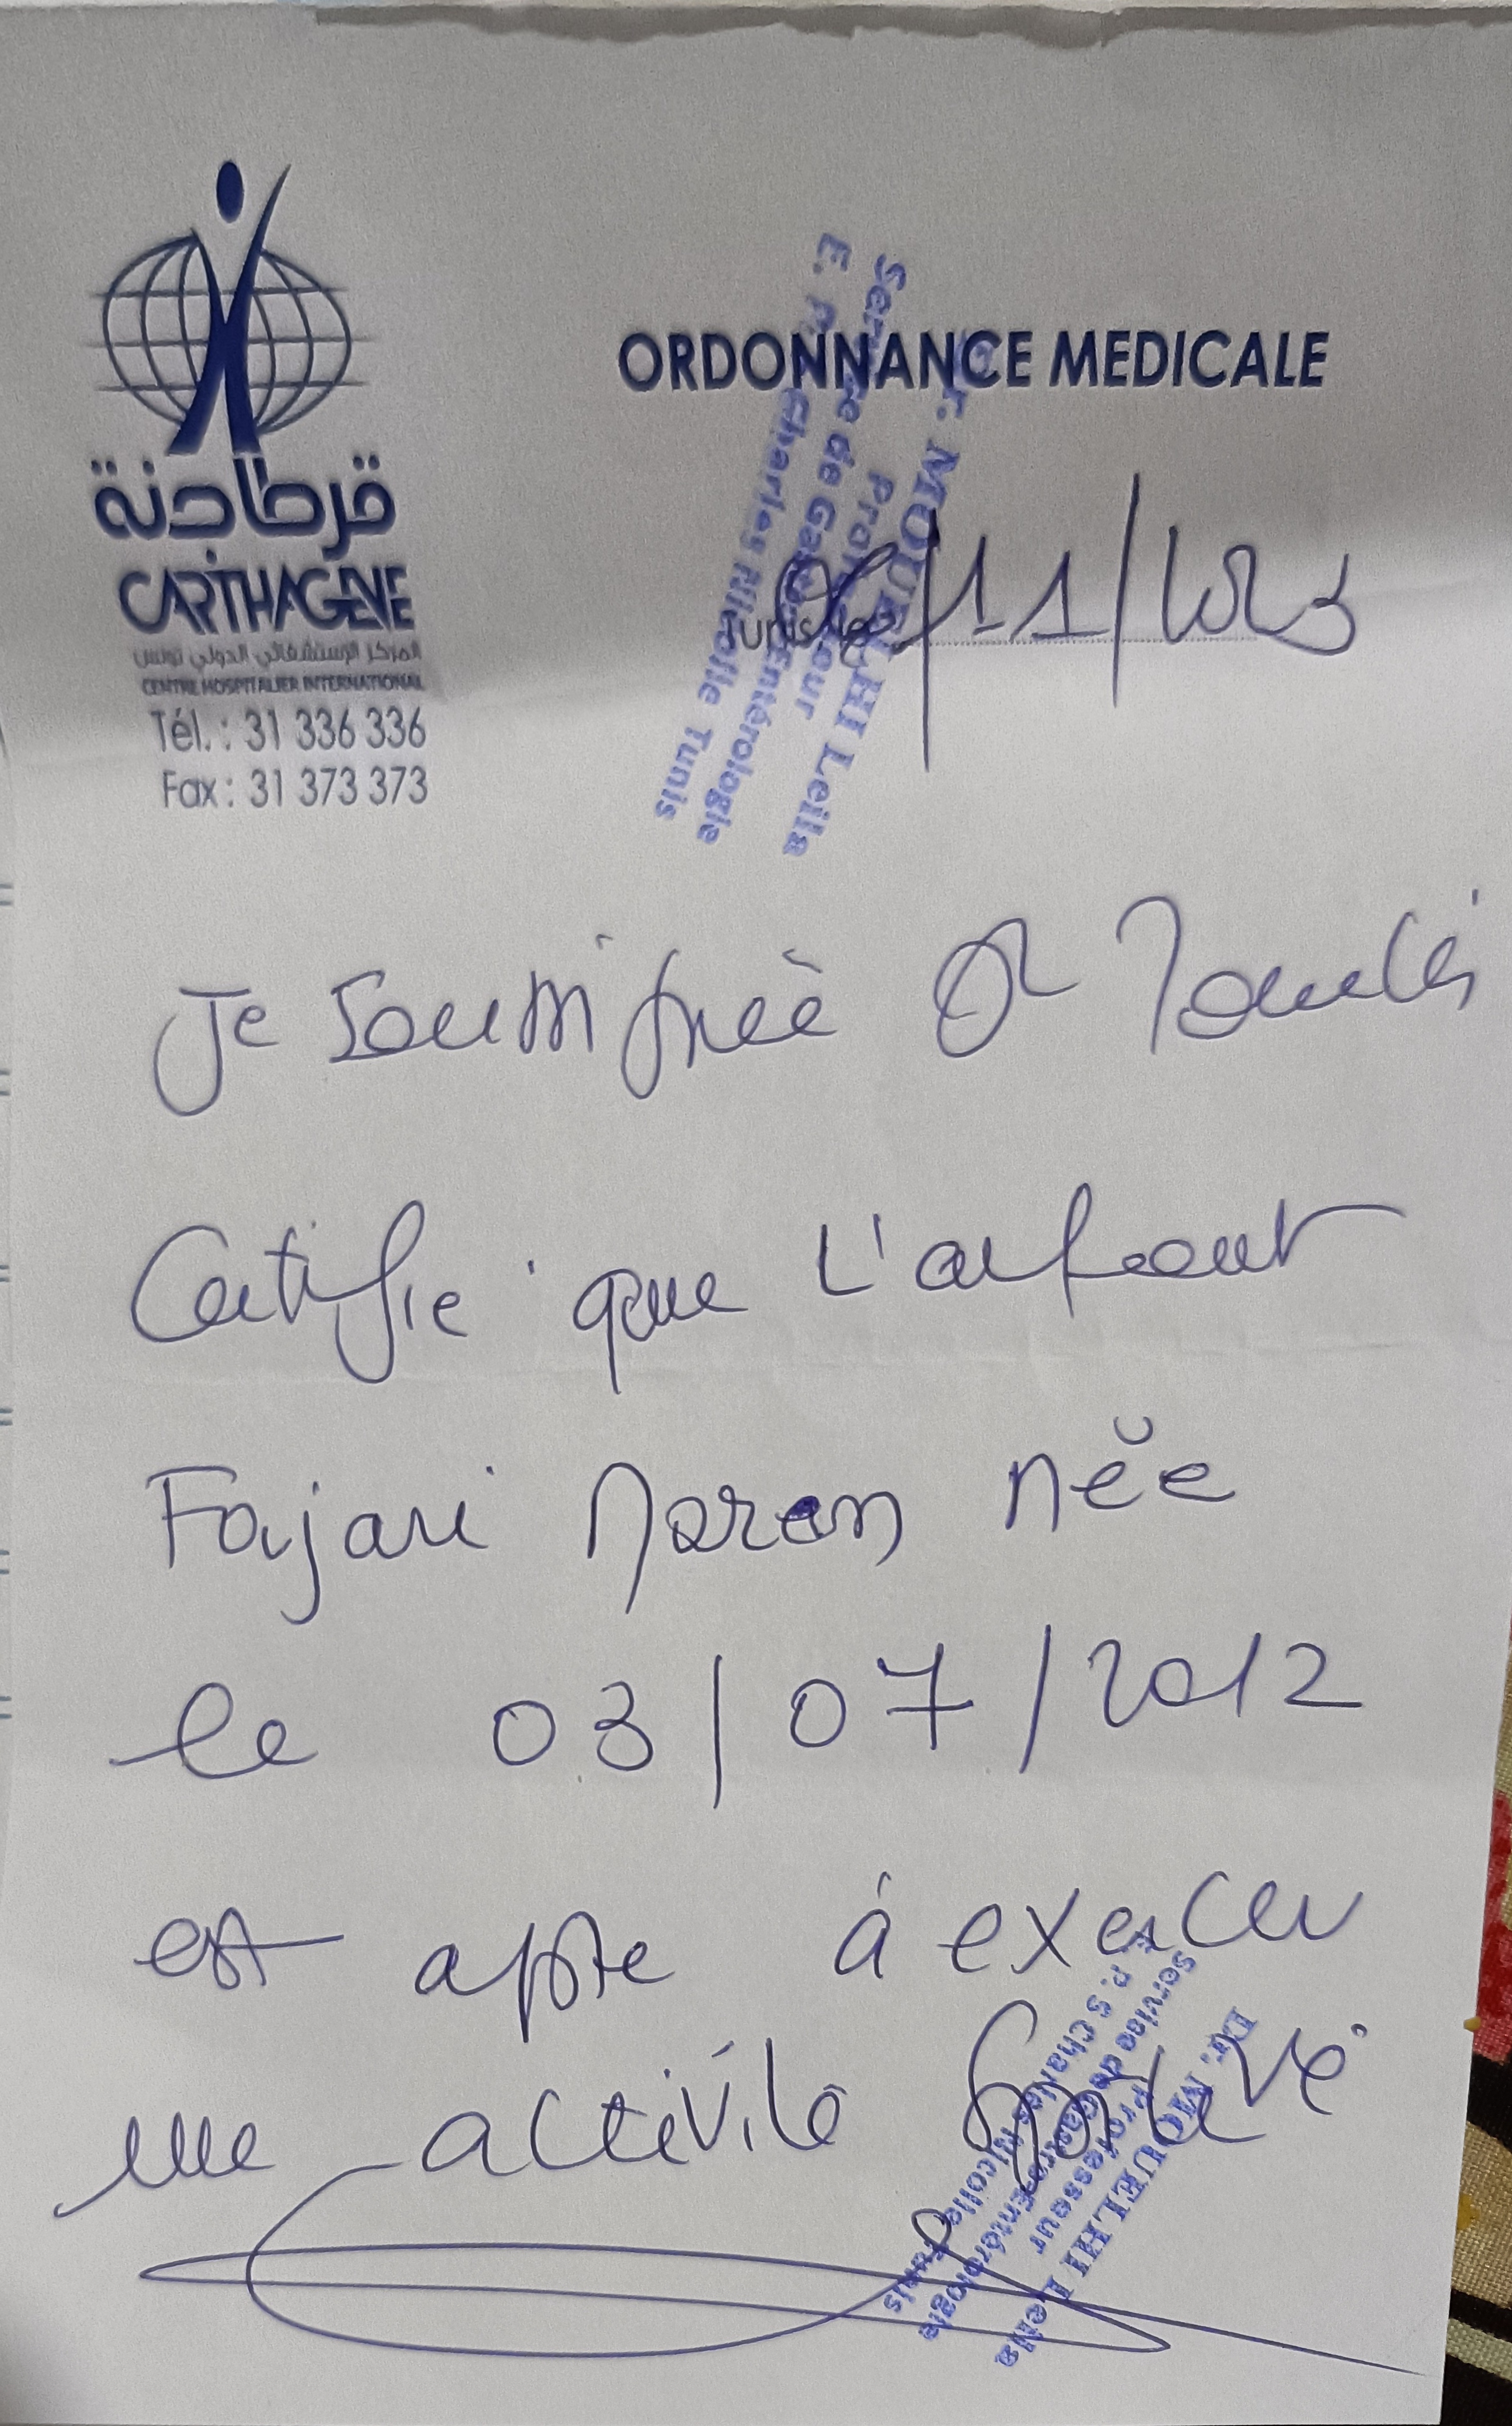 ORDONNANCE MEDICALE
قرطاجنة
CARTHAGENE
المركز الإستشفائي الدولي تونس
CENTRE HOSPITALIER INTERNATIONAL
Tél. : 31 336 336
Fax : 31 373 373
Dr. MOUELHI Leila
Professeur
Service de Gastro-Entérologie
E. P. S Charles Nicolle Tunis
Tunis le /11/2023
Je soussignée Dr
Certifie que L'enfant
Fajari née
le 03/07/2012
est apte à exercer
une activité sportive.
Dr. MOUELHI Leila
Professeur
Service de Gastro-Entérologie
E. P. S Charles Nicolle Tunis